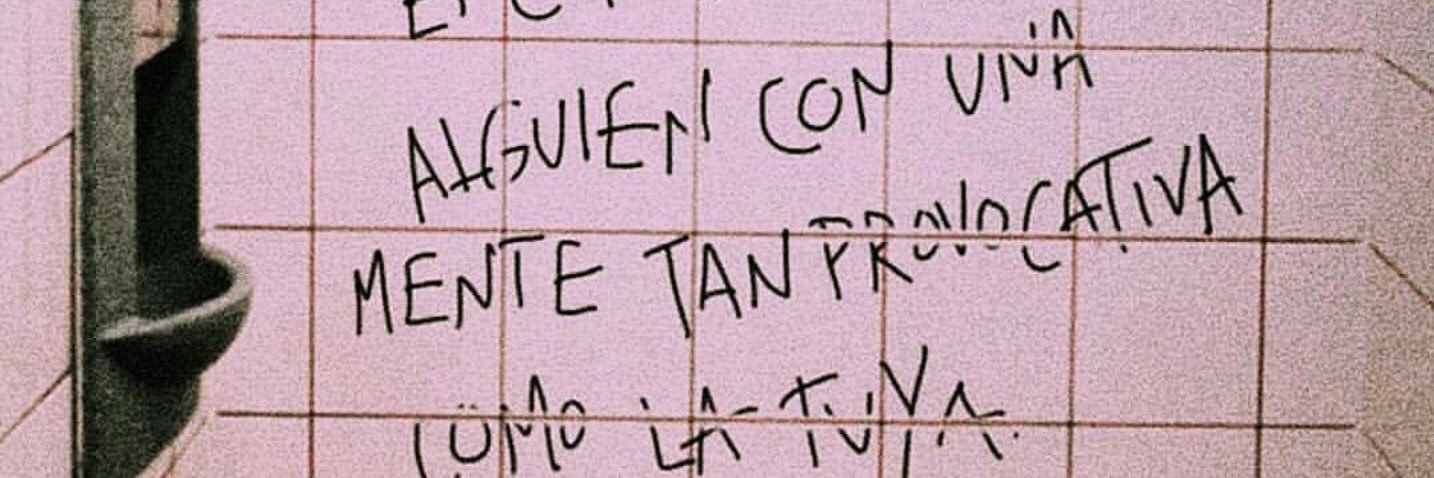 ALGUIEN CON UNA
MENTE TAN PROVOCATIVA
COMO LA TUYA.